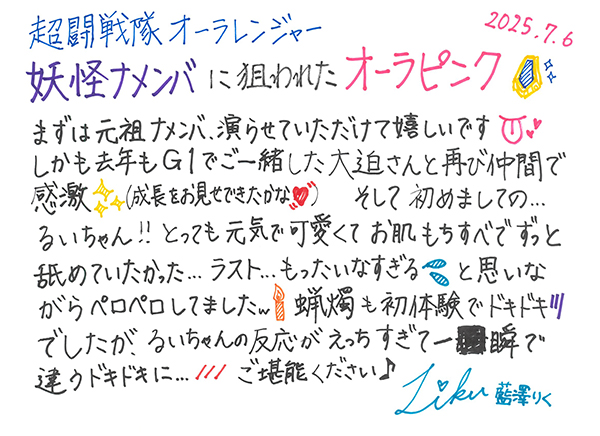 2025.7.6
超闘戦隊オーラレンジャー
妖怪ナメンバに狙われたオーラピンク
まずは元祖ナメンバ、演らせていただけて嬉しいです
しかも去年もG1でご一緒した大迫さんと再び仲間で
感激(成長をお見せできたかな) そして初めましての…
るいちゃん!! とっても元気で可愛くてお肌もちすべでずっと
舐めていたかった… ラスト…もったいなすぎると思いな
がらペロペロしてましたw 蝋燭も初体験でドキドキ
でしたが、るいちゃんの反応がえっちすぎて一瞬で
違うドキドキに… ご堪能ください♪
Liku 藍澤りく